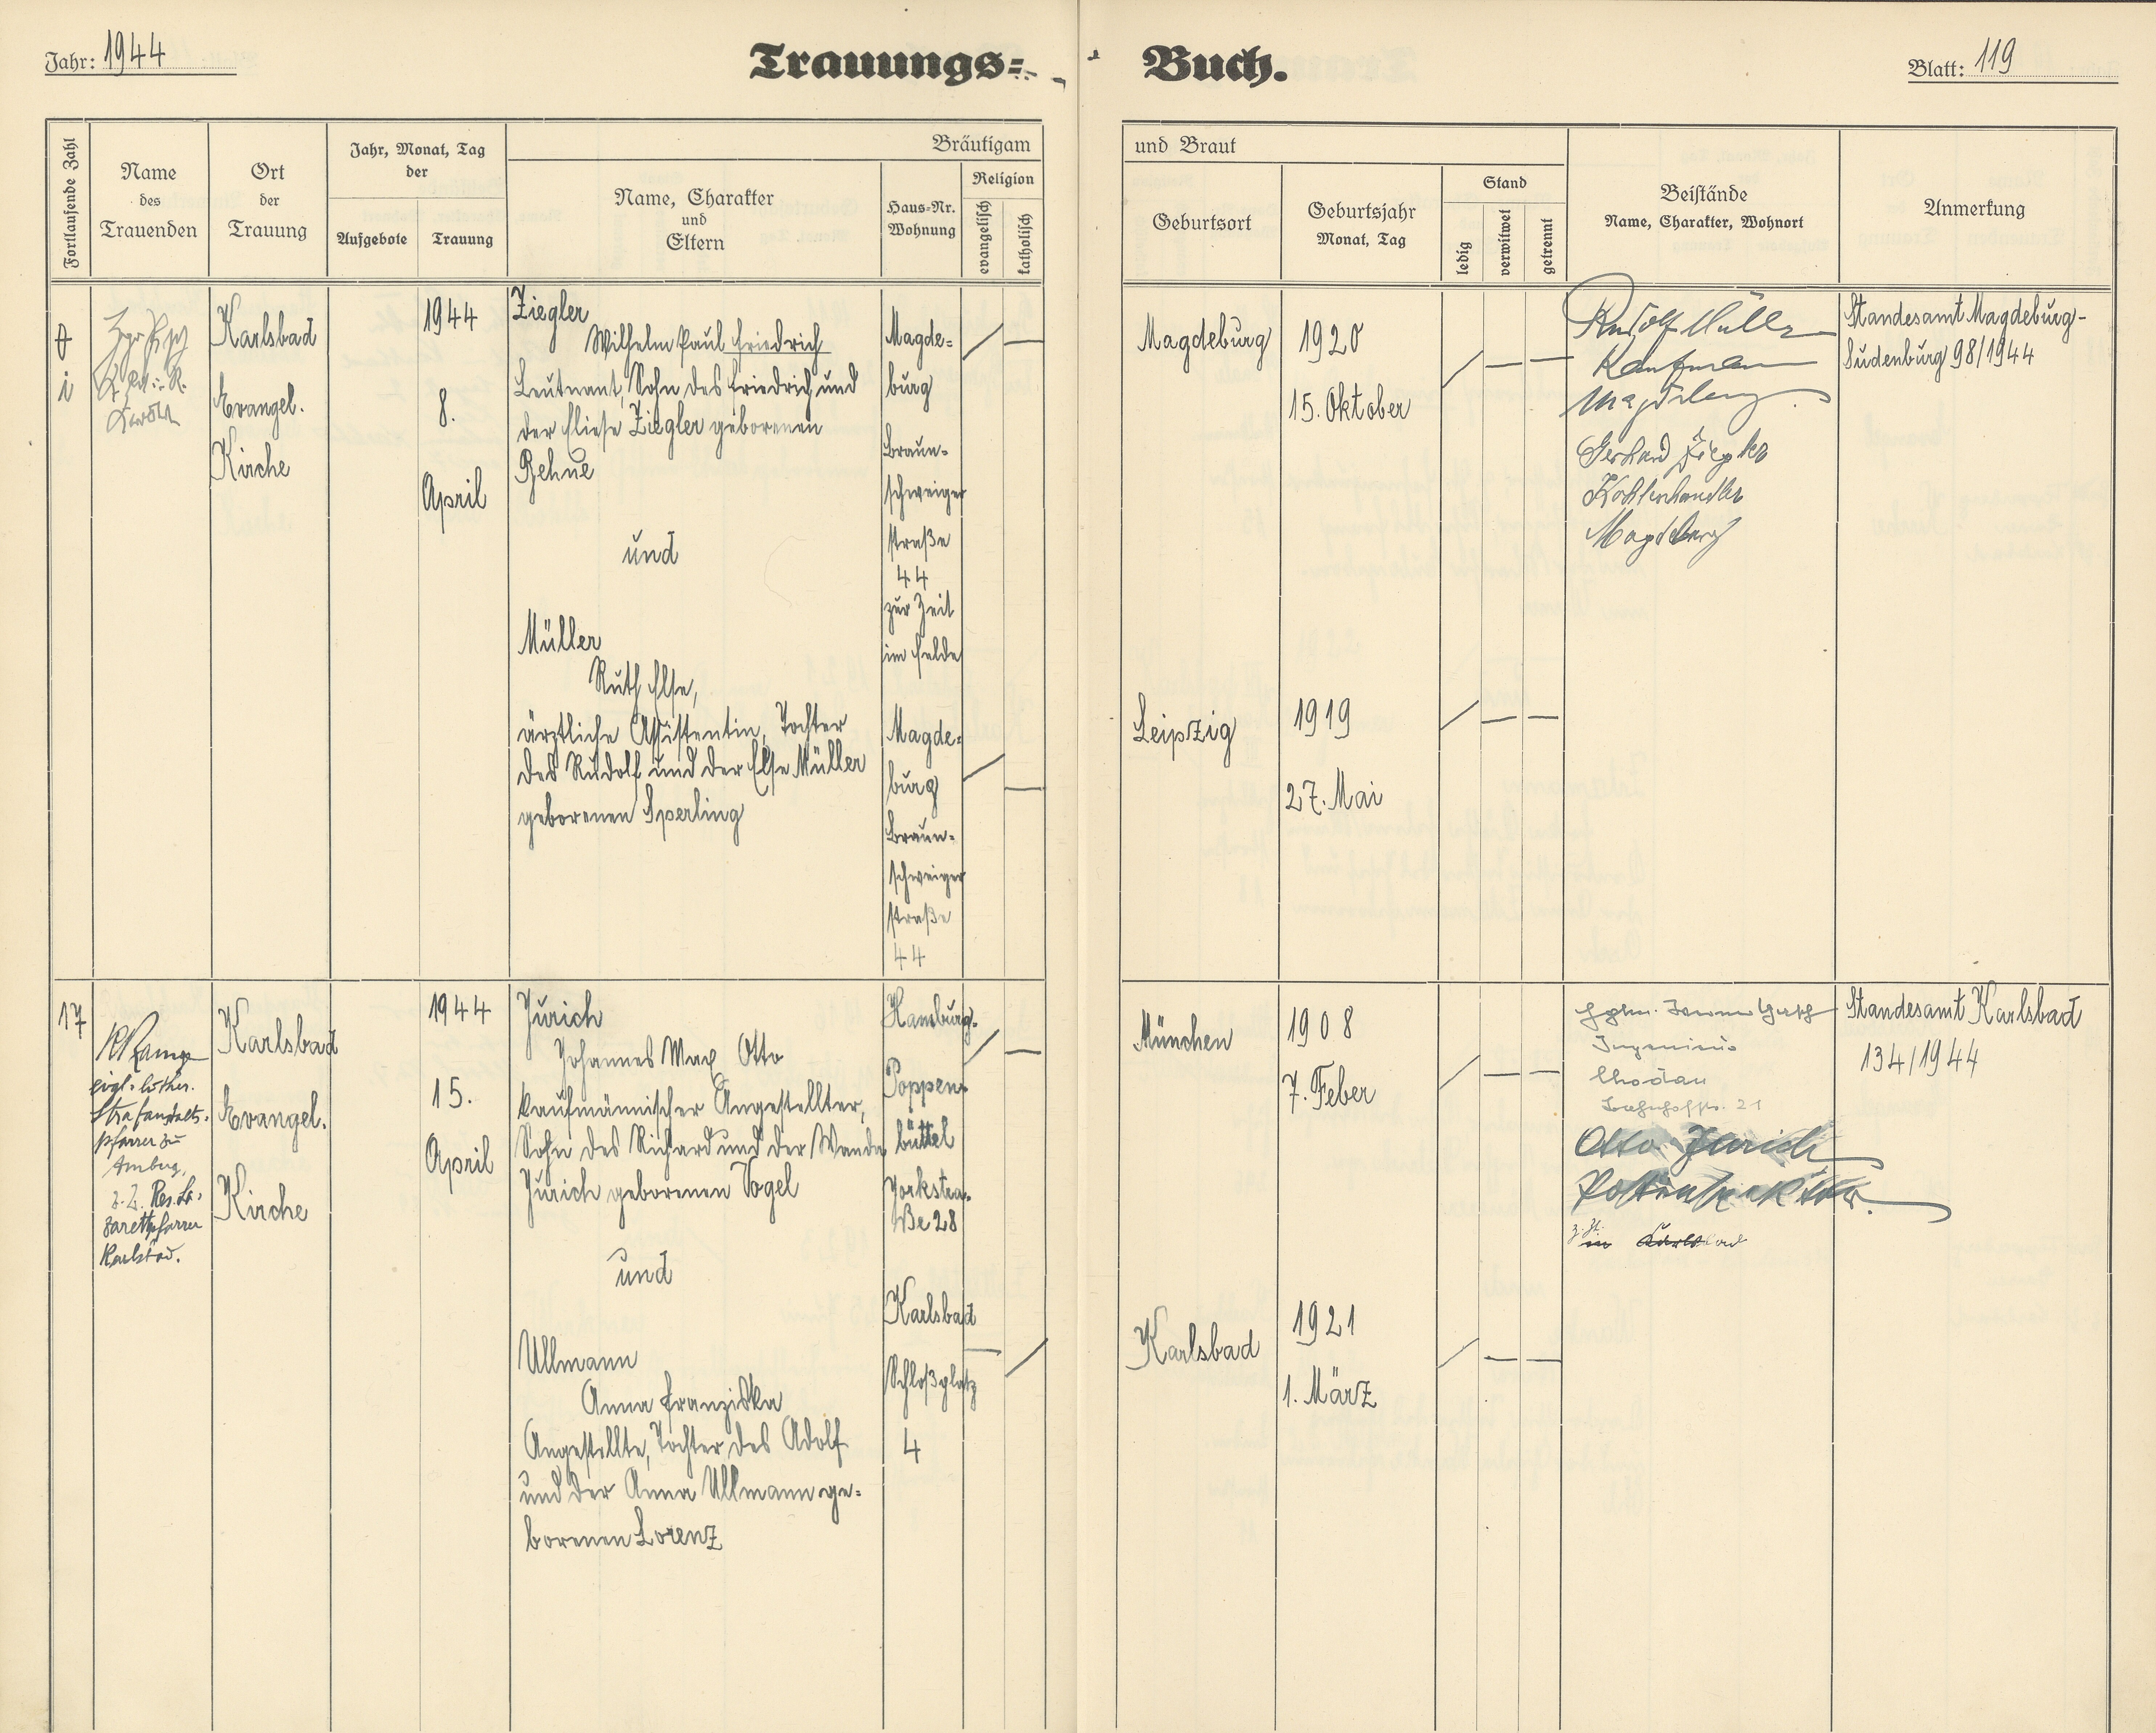 Jahr: 1944
Trauungs= Buch.
Blatt: 119
Fortlaufende Zahl
Name
des
Trauenden
Ort
der
Trauung
Jahr, Monat, Tag
der
Aufgebote
Trauung
Bräutigam
Name, Charakter
und
Eltern
Haus=Nr.
Wohnung
Religion
evangelisch
katholisch
und Braut
Geburtsort
Geburtsjahr
Monat, Tag
Stand
ledig
verwitwet
getrennt
Beistände
Name, Charakter, Wohnort
Anmerkung
Karlsbad
Evangel.
Kirche
1944
8.
April
Ziegler
Wilhelm Paul Friedrich
Leutnant, Sohn des Friedrich und
der Eliese Ziegler geborenen
Rehne
und
Müller
Ruth Else,
ärztliche Assistentin, Tochter
des Rudolf und der Else Müller
geborenen Sperling
Magde=
burg
Braun=
schweiger
straße
44
zur Zeit
im Felde
Magde=
burg
Braun=
schweiger
straße
44
Magdeburg
1920
15. Oktober
Leipzig
1919
27. Mai
Rudolf Müller
Kaufmann
Magdeburg.
Gerhard Ziegler
Kohlenhändler
Magdeburg
Standesamt Magdeburg-
Sudenburg 98/1944
17
evgl. luther.
Strafanstalts-
pfarrer zu
Amberg,
z. Z. Res. La-
zarettpfarrer
Karlsbad.
Karlsbad
Evangel.
Kirche
1944
15.
April
Jurich
Johannes Max Otto
kaufmännischer Angestellter,
Sohn des Richard und der Wanda
Jurich geborenen Vogel
und
Ullmann
Anna Franziska
Angestellte, Tochter des Adolf
und der Anna Ullmann ge=
borenen Lorenz
Hamburg-
Poppen-
büttel
Yorkstra-
ße 28
Karlsbad
Schloßplatz
4
München
1908
7. Feber
Karlsbad
1921
1. März
Ingenieur
Chodau
Bahnhofstr. 21
Otto Jurich
z. Zt.
in Karlsbad
Standesamt Karlsbad
134/1944